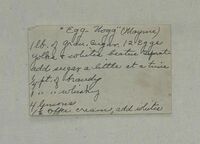 "Egg Nogg" (Mayme)
1 lb. of gran. sugar, 12 Eggs
yolks & whites beaten separate
add sugar a little at a time
pt. of brandy
" " " whisky
4 lemons
coffee cream, add whites